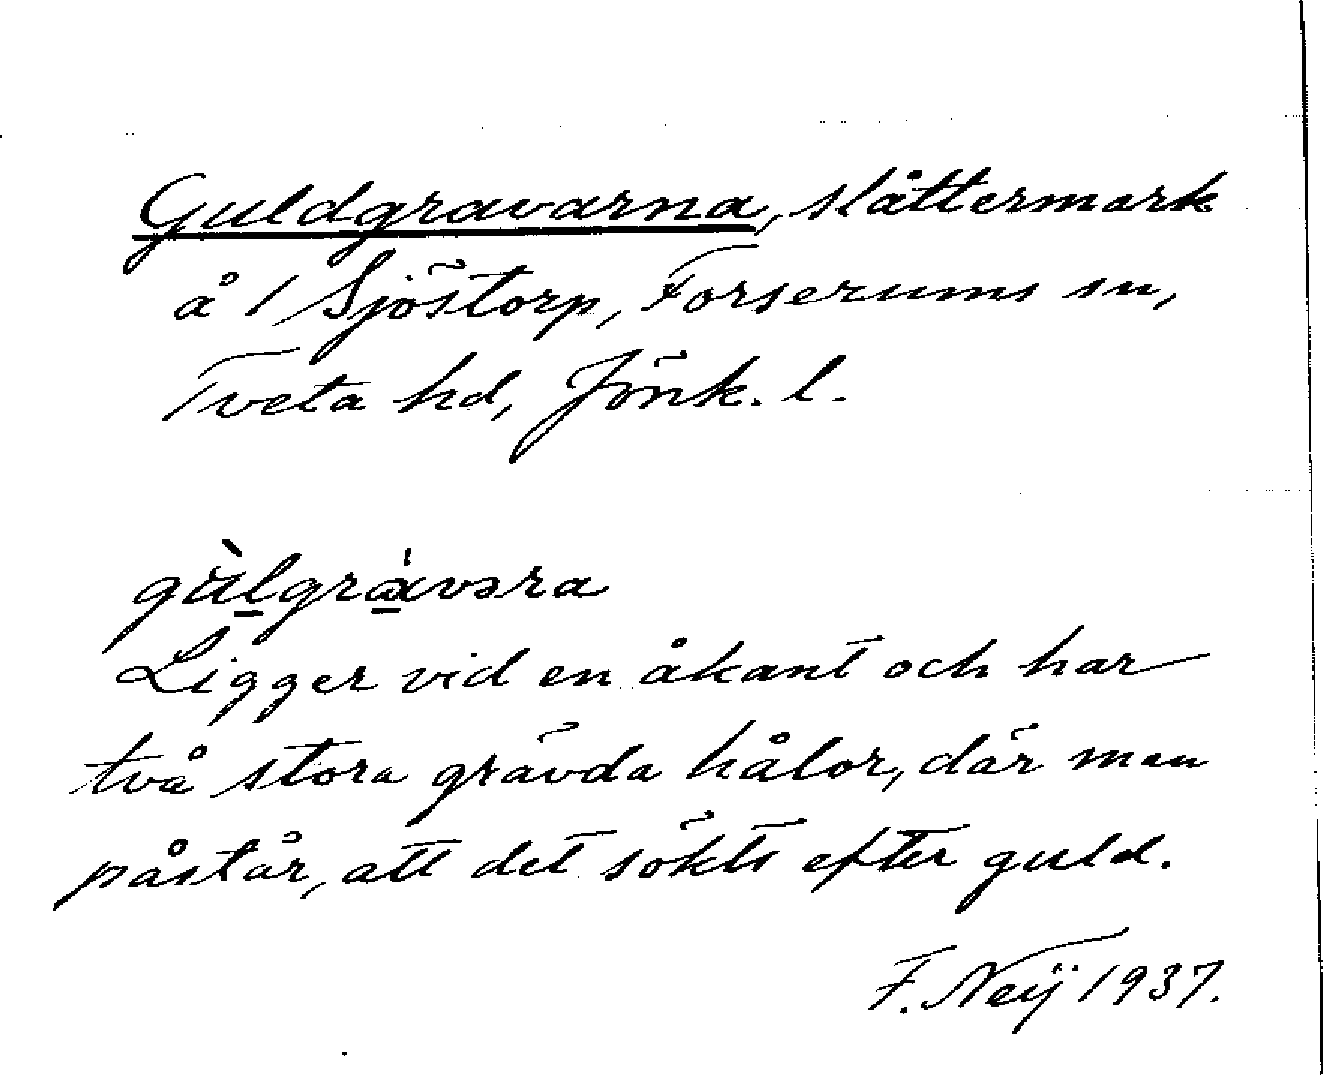 Guldgravarna, slåttermark
å 1 Sjöstorp, Forserums sn,
Tveta hd, Jönk. l.
gùlgràvəra
Ligger vid en åkant och har
två stora grävda hålor, där man
påstår, att det sökts efter guld.
F. Neij 1937.